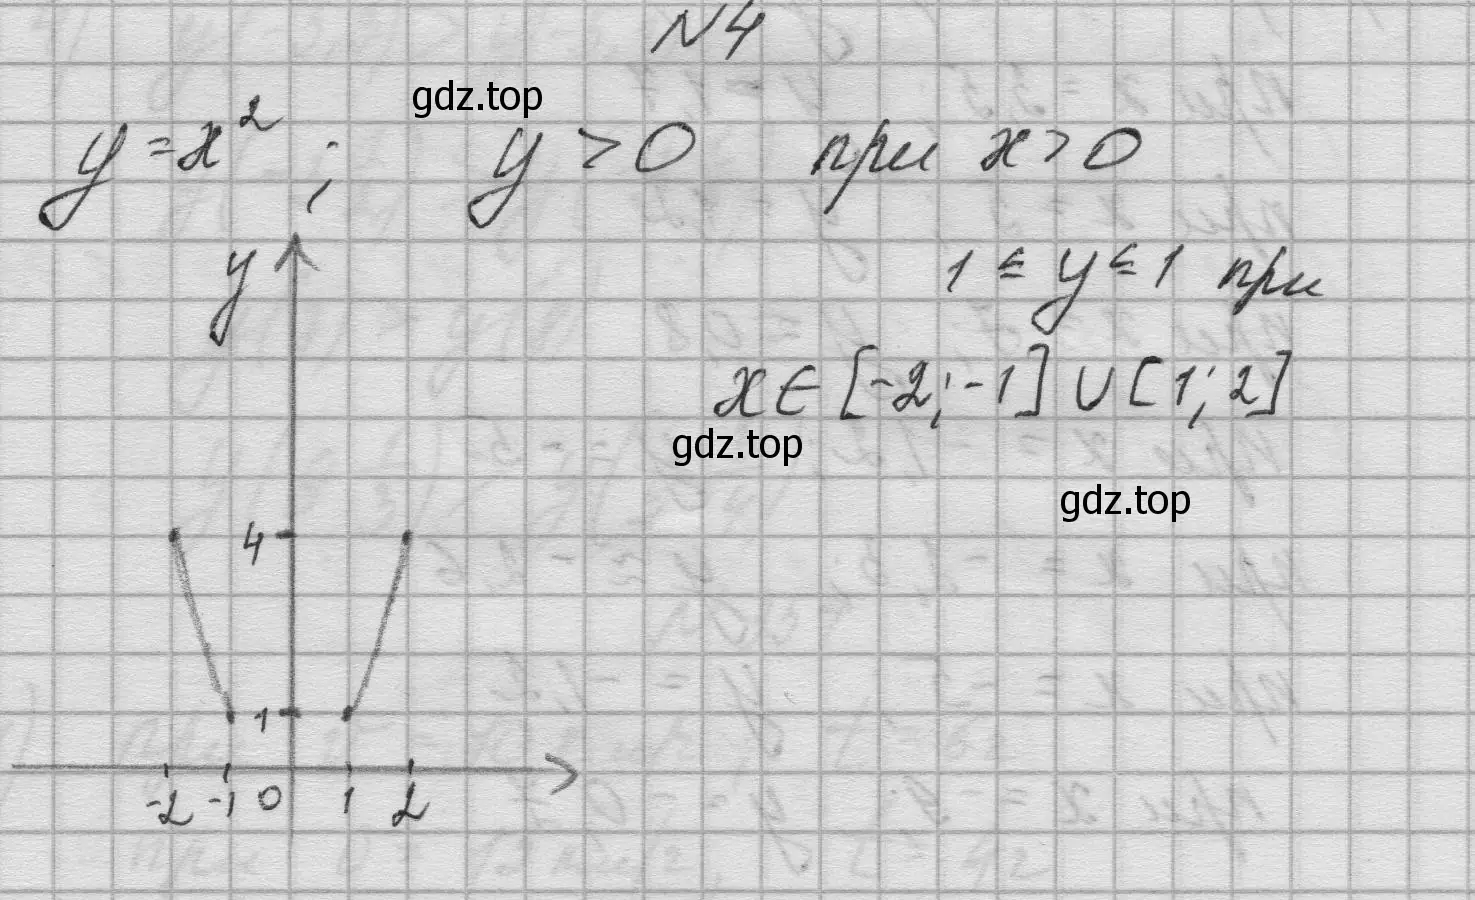 N4
gdz.top
y = x²; y > 0 при x > 0
y 1 ≤ y ≤ 1 при
x ∈ [-2; -1] ∪ [1; 2]
gdz.top
gdz.top
4
1
-2 -1 0 1 2